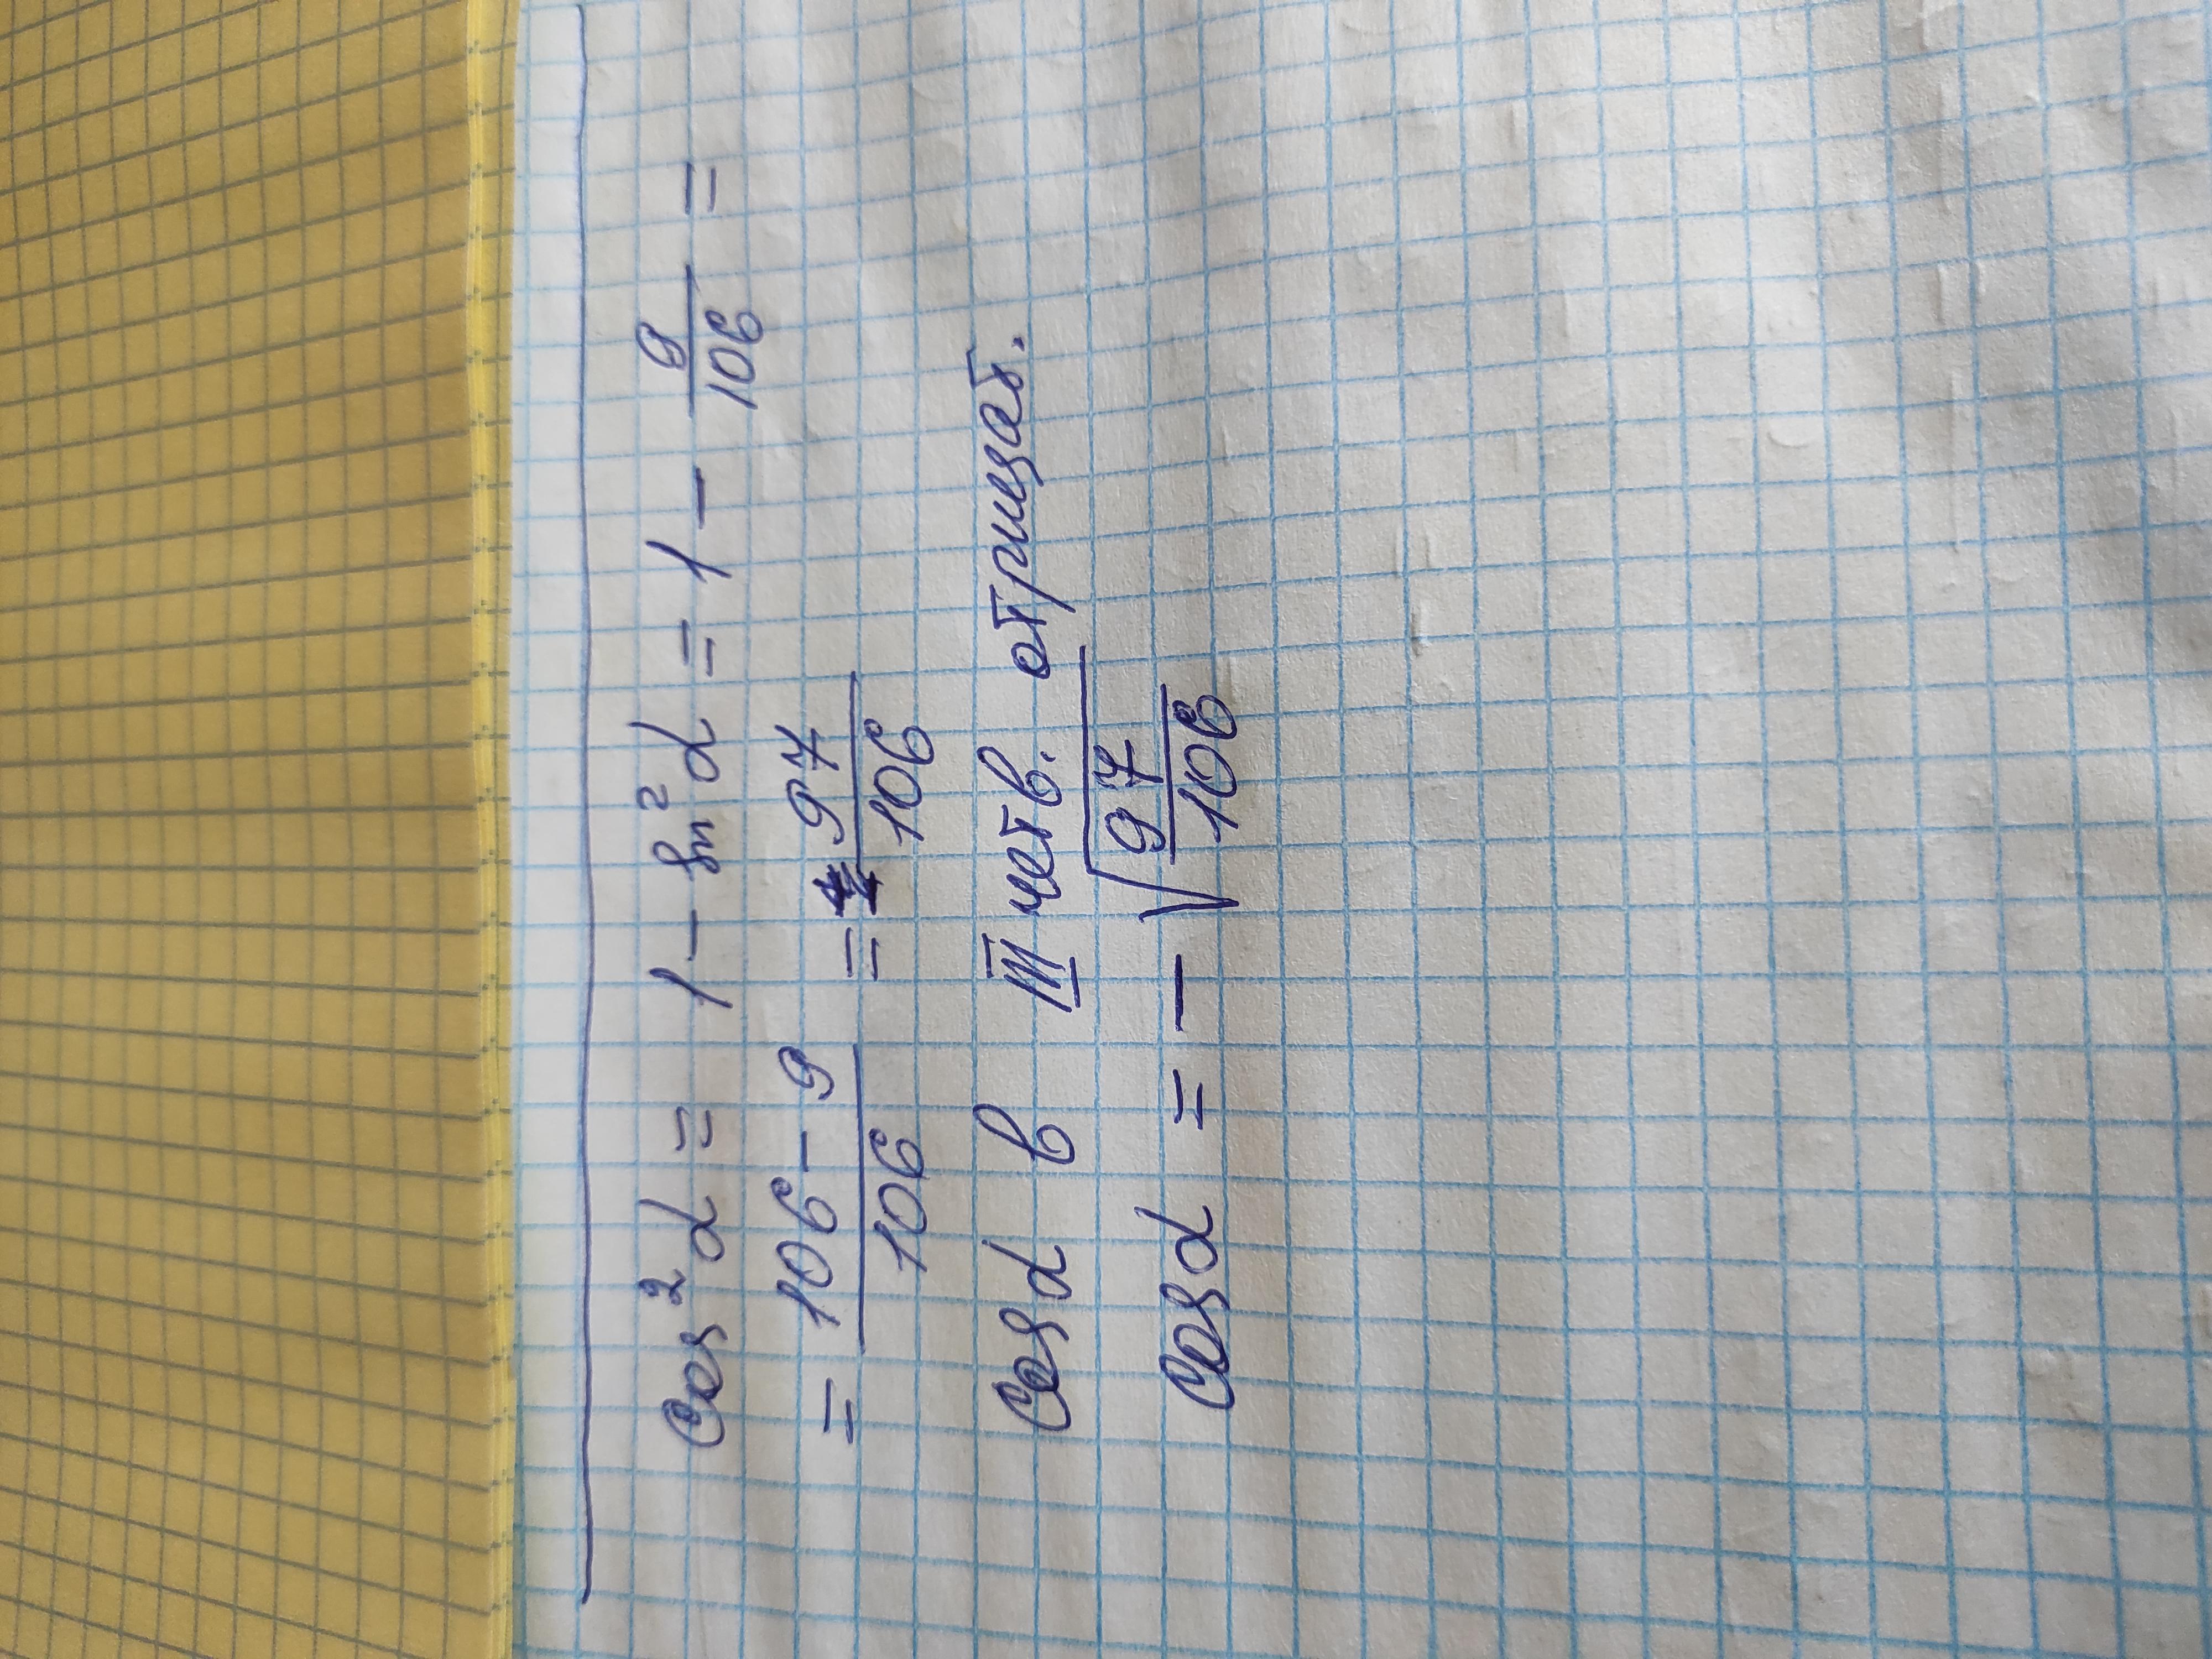 cos²α = 1 - sin²α = 1 - 9/106 =
= (106 - 9)/106 = 97/106
cos α в III четв. отрицат.
cos α = - √(97/106)